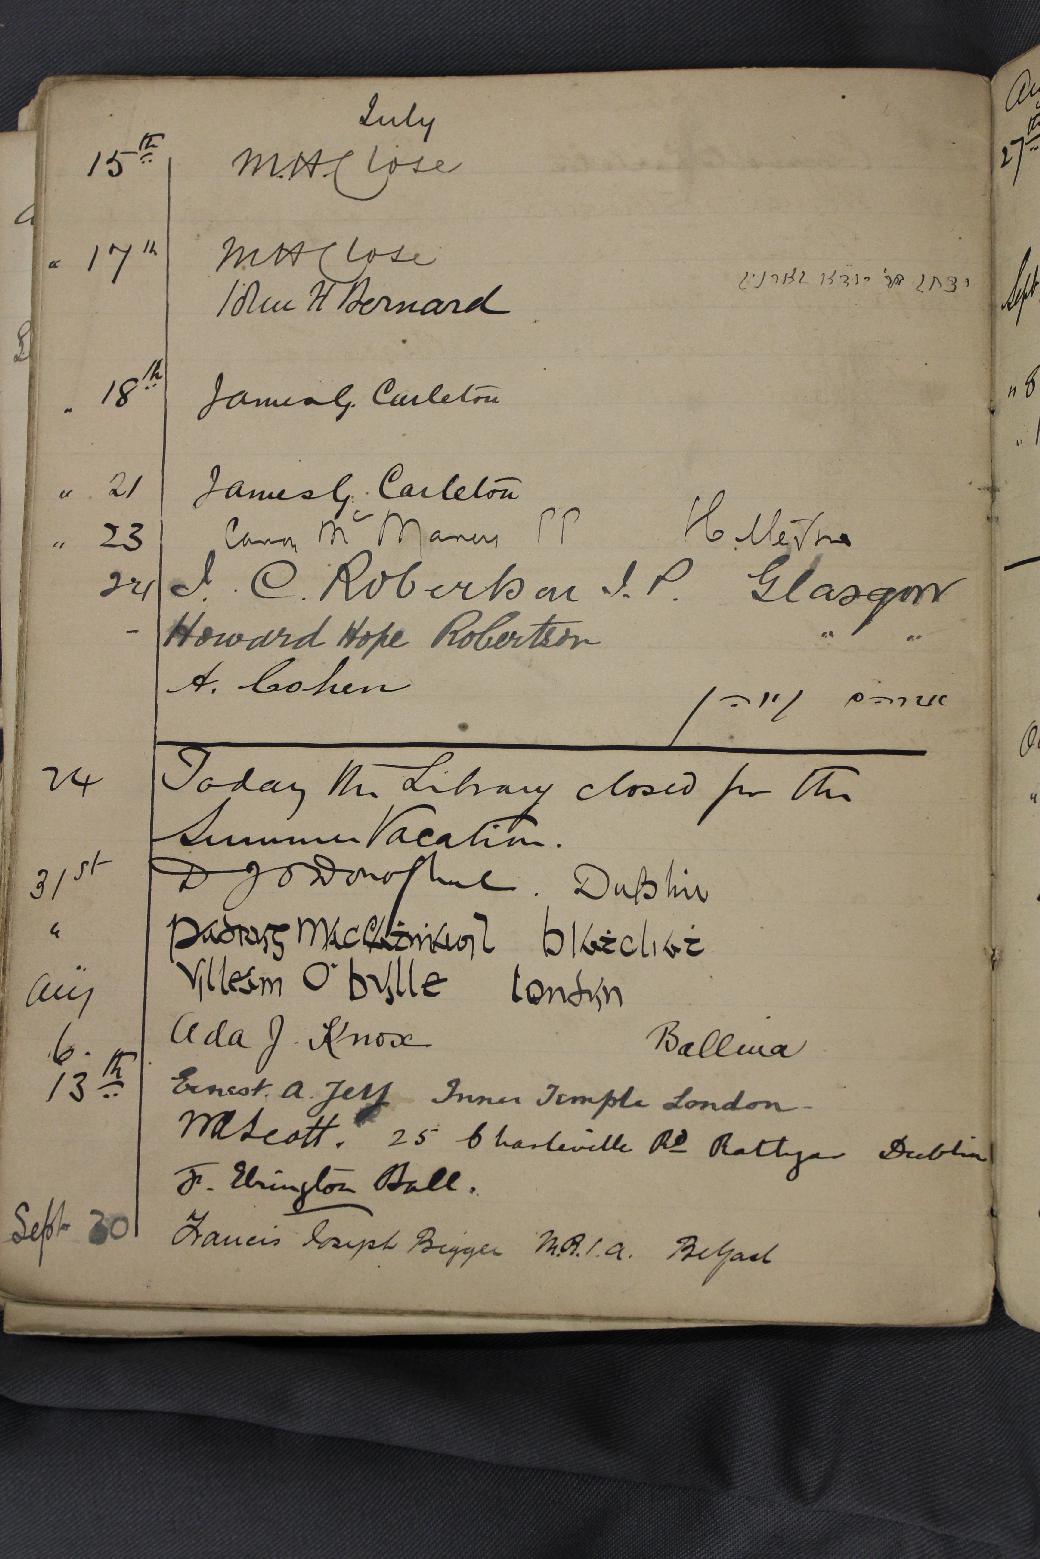 July
15th M.H. Close
" 17th M H Close
John H Bernard
" 18th James G. Carleton
" 21 James G. Carleton
" 23 Canon Mc Manus PP
24 J. C. Robertson J. P. Glasgow
- Howard Hope Robertson " "
A. Cohen
24 Today the Library closed for the
Summer Vacation.
31st D J O'Donoghue. Dublin
"
London
Aug
6. Ada J. Knox Ballina
13th Ernest. A. Jelf Inner Temple London-
W A Scott. 25 Charleville Rd Rathgar Dublin
F. Elrington Ball.
Sept 30 Francis Joseph Bigger M.R.I.A. Belfast
Sept
27th